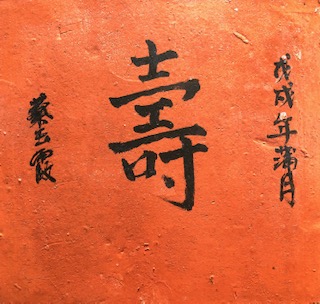 戊戌年滿月
壽
蔡玉霞